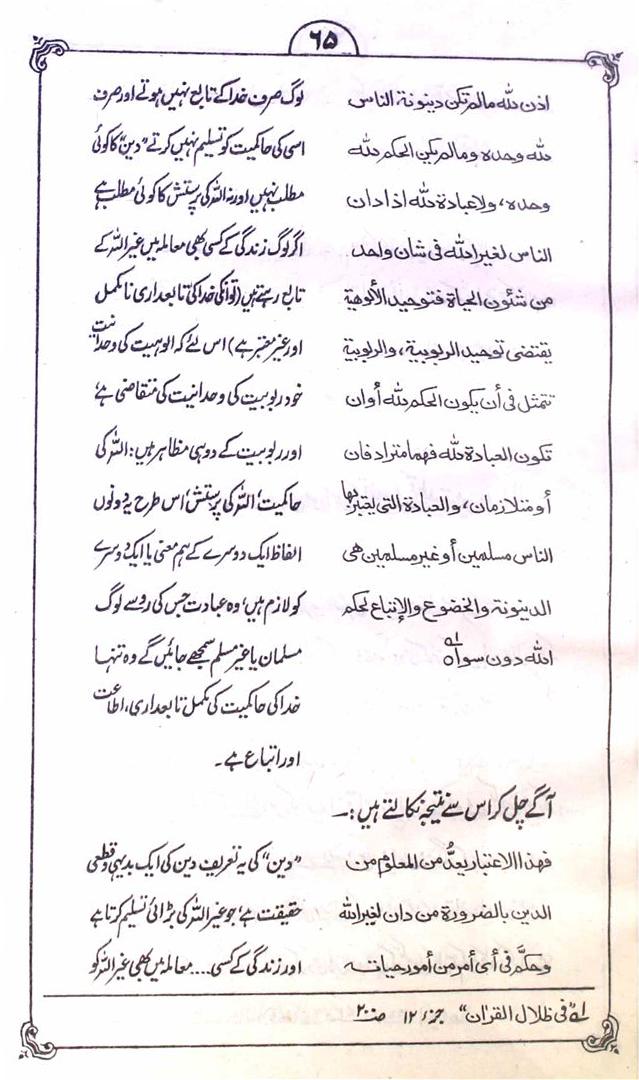 ۶۵
اذن للہ مالم تکن دینونة الناس
للہ وحدہ ومالم یکن الحکم للہ
وحدہ، ولا عبادة للہ اذا دان
الناس لغیر اللہ فی شان واحد
من شئون الحیاة فتوحید الألوهیة
یقتضی توحید الربوبیة، والربوبیة
تتمثل فی أن یکون الحکم للہ أو ان
تکون العبادة للہ فهما مترادفان
أو متلازمان، والعبادة التی یعتبر بها
الناس مسلمین أو غیر مسلمین هی
الدینونة والخضوع والإتباع لحکم
اللہ دون سواہ لہ
لوگ صرف خدا کے تابع نہیں ہوتے اور صرف
اسی کی حاکمیت کو تسلیم نہیں کرتے ”دین“ کا کوئی
مطلب نہیں اور نہ اللہ کی پرستش کا کوئی مطلب ہے
اگر لوگ زندگی کے کسی بھی معاملہ میں غیر اللہ کے
تابع رہتے ہیں (تو انکی خدا کی تابعداری نا مکمل
اور غیر معتبر ہے) اس لئے کہ الوہیت کی وحدانیت
خود ربوبیت کی وحدانیت کی متقاضی ہے
اور ربوبیت کے دو ہی مظاہر ہیں: اللہ کی
حاکمیت، اللہ کی پرستش، اس طرح یہ دونوں
الفاظ ایک دوسرے کے ہم معنی یا ایک دوسرے
کو لازم ہیں، وہ عبادت جس کی رو سے لوگ
مسلمان یا غیر مسلم سمجھے جائیں گے وہ تنہا
خدا کی حاکمیت کی مکمل تابعداری، اطاعت
اور اتباع ہے۔
آگے چل کر اس سے نتیجہ نکالتے ہیں:—
فهذا الاعتبار یعدُّ من المعلوم من
الدین بالضرورة من دان لغیر اللہ
وحکَّم فی أی أمر من أمور حیاتہ
”دین“ کی یہ تعریف دین کی ایک بدیہی و قطعی
حقیقت ہے، جو غیر اللہ کی بڑائی تسلیم کرتا ہے
اور زندگی کے کسی... معاملہ میں بھی غیر اللہ کو
لہ ”فی ظلال القرآن“ جزء ۱۲ صـ ۲۰